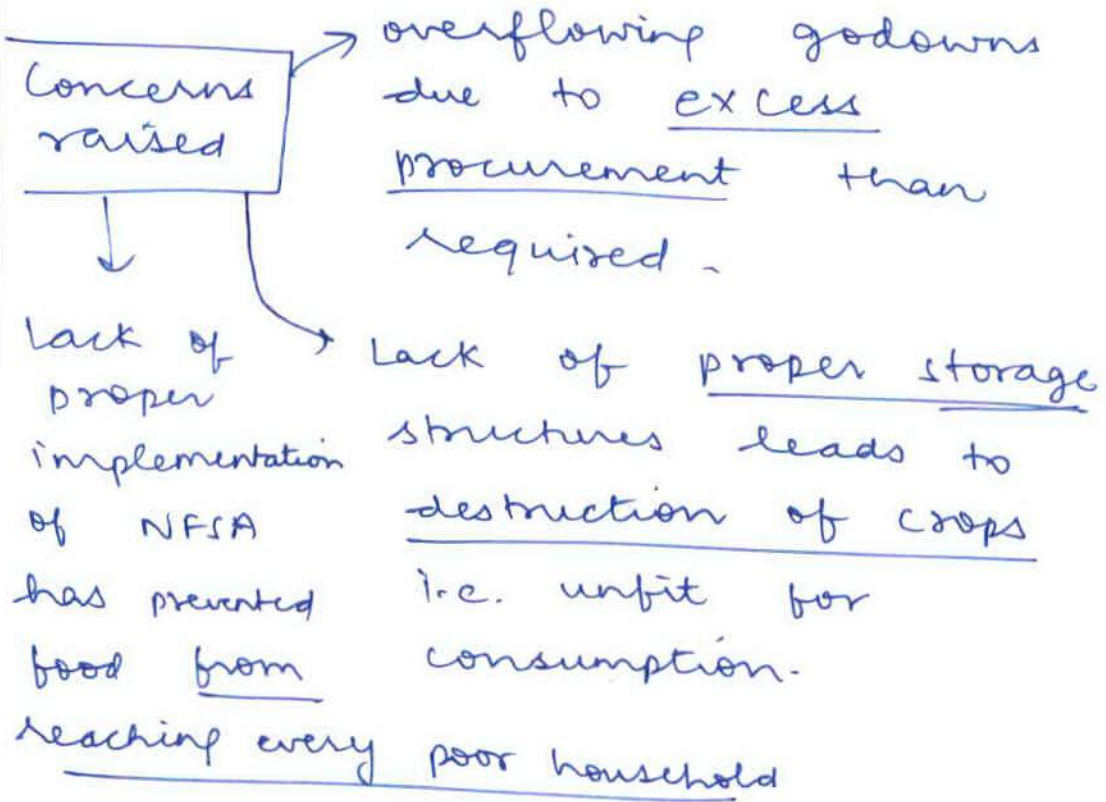 Concerns
raised
overflowing godowns
due to excess
procurement than
required.
Lack of
proper
implementation
of NFSA
has prevented
food from
reaching every poor household
Lack of proper storage
structures leads to
destruction of crops
i.e. unfit for
consumption.